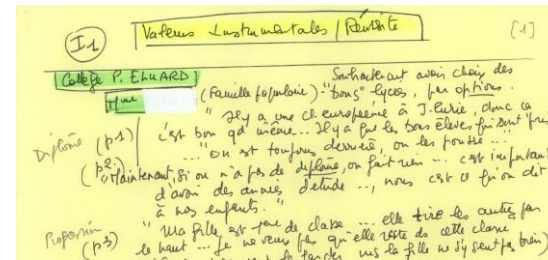 I1 Valeurs Instrumentales / Réussite [1]
Collège P. ELUARD Souhaiteraient avoir choix des
Mme (Famille populaire) "bons" lycées, par options.
"Il y a une cl. européenne à J. Curie, donc ça
Diplôme (p1) c'est bon qd même... Il y a que les bons élèves qui sont pris
... "On est toujours derrière, on les pousse...
(p2: "Maintenant, si on n'a pas de diplôme, on fait rien ... c'est important
d'avoir des années d'étude ..., nous c'est ce qu'on dit
à nos enfants."
"Ma fille, est de classe ... elle tire les autres par
(p3) le haut ... je ne veux pas qu'elle reste ds cette classe
la fille ne s'y sent pas bien)